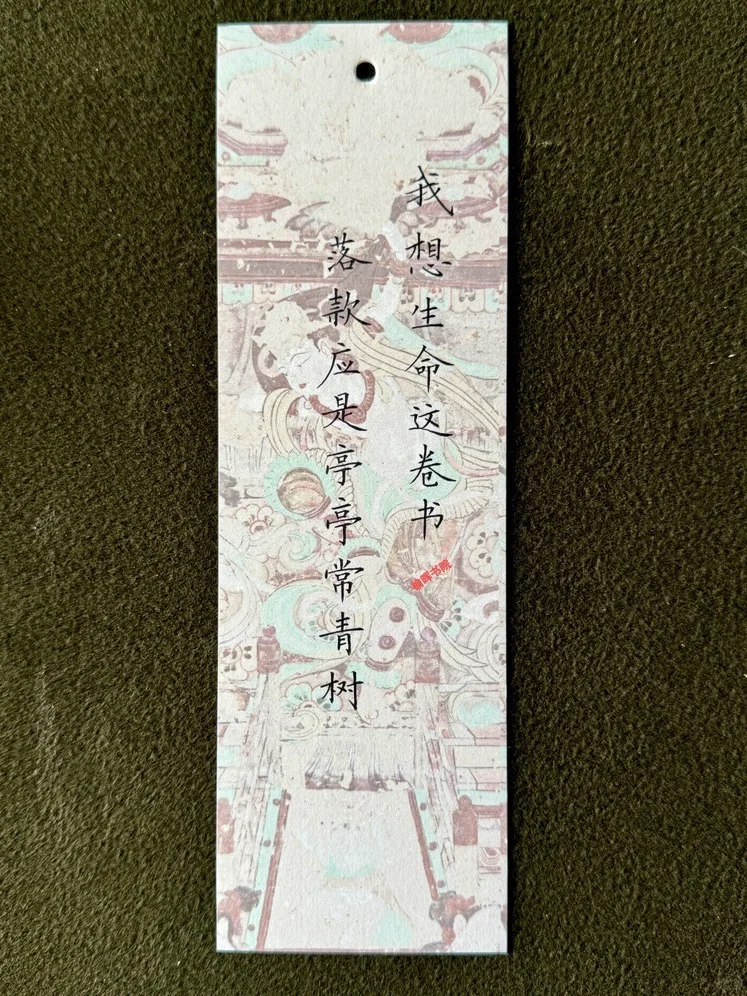 我想生命这卷书
落款应是亭亭常青树